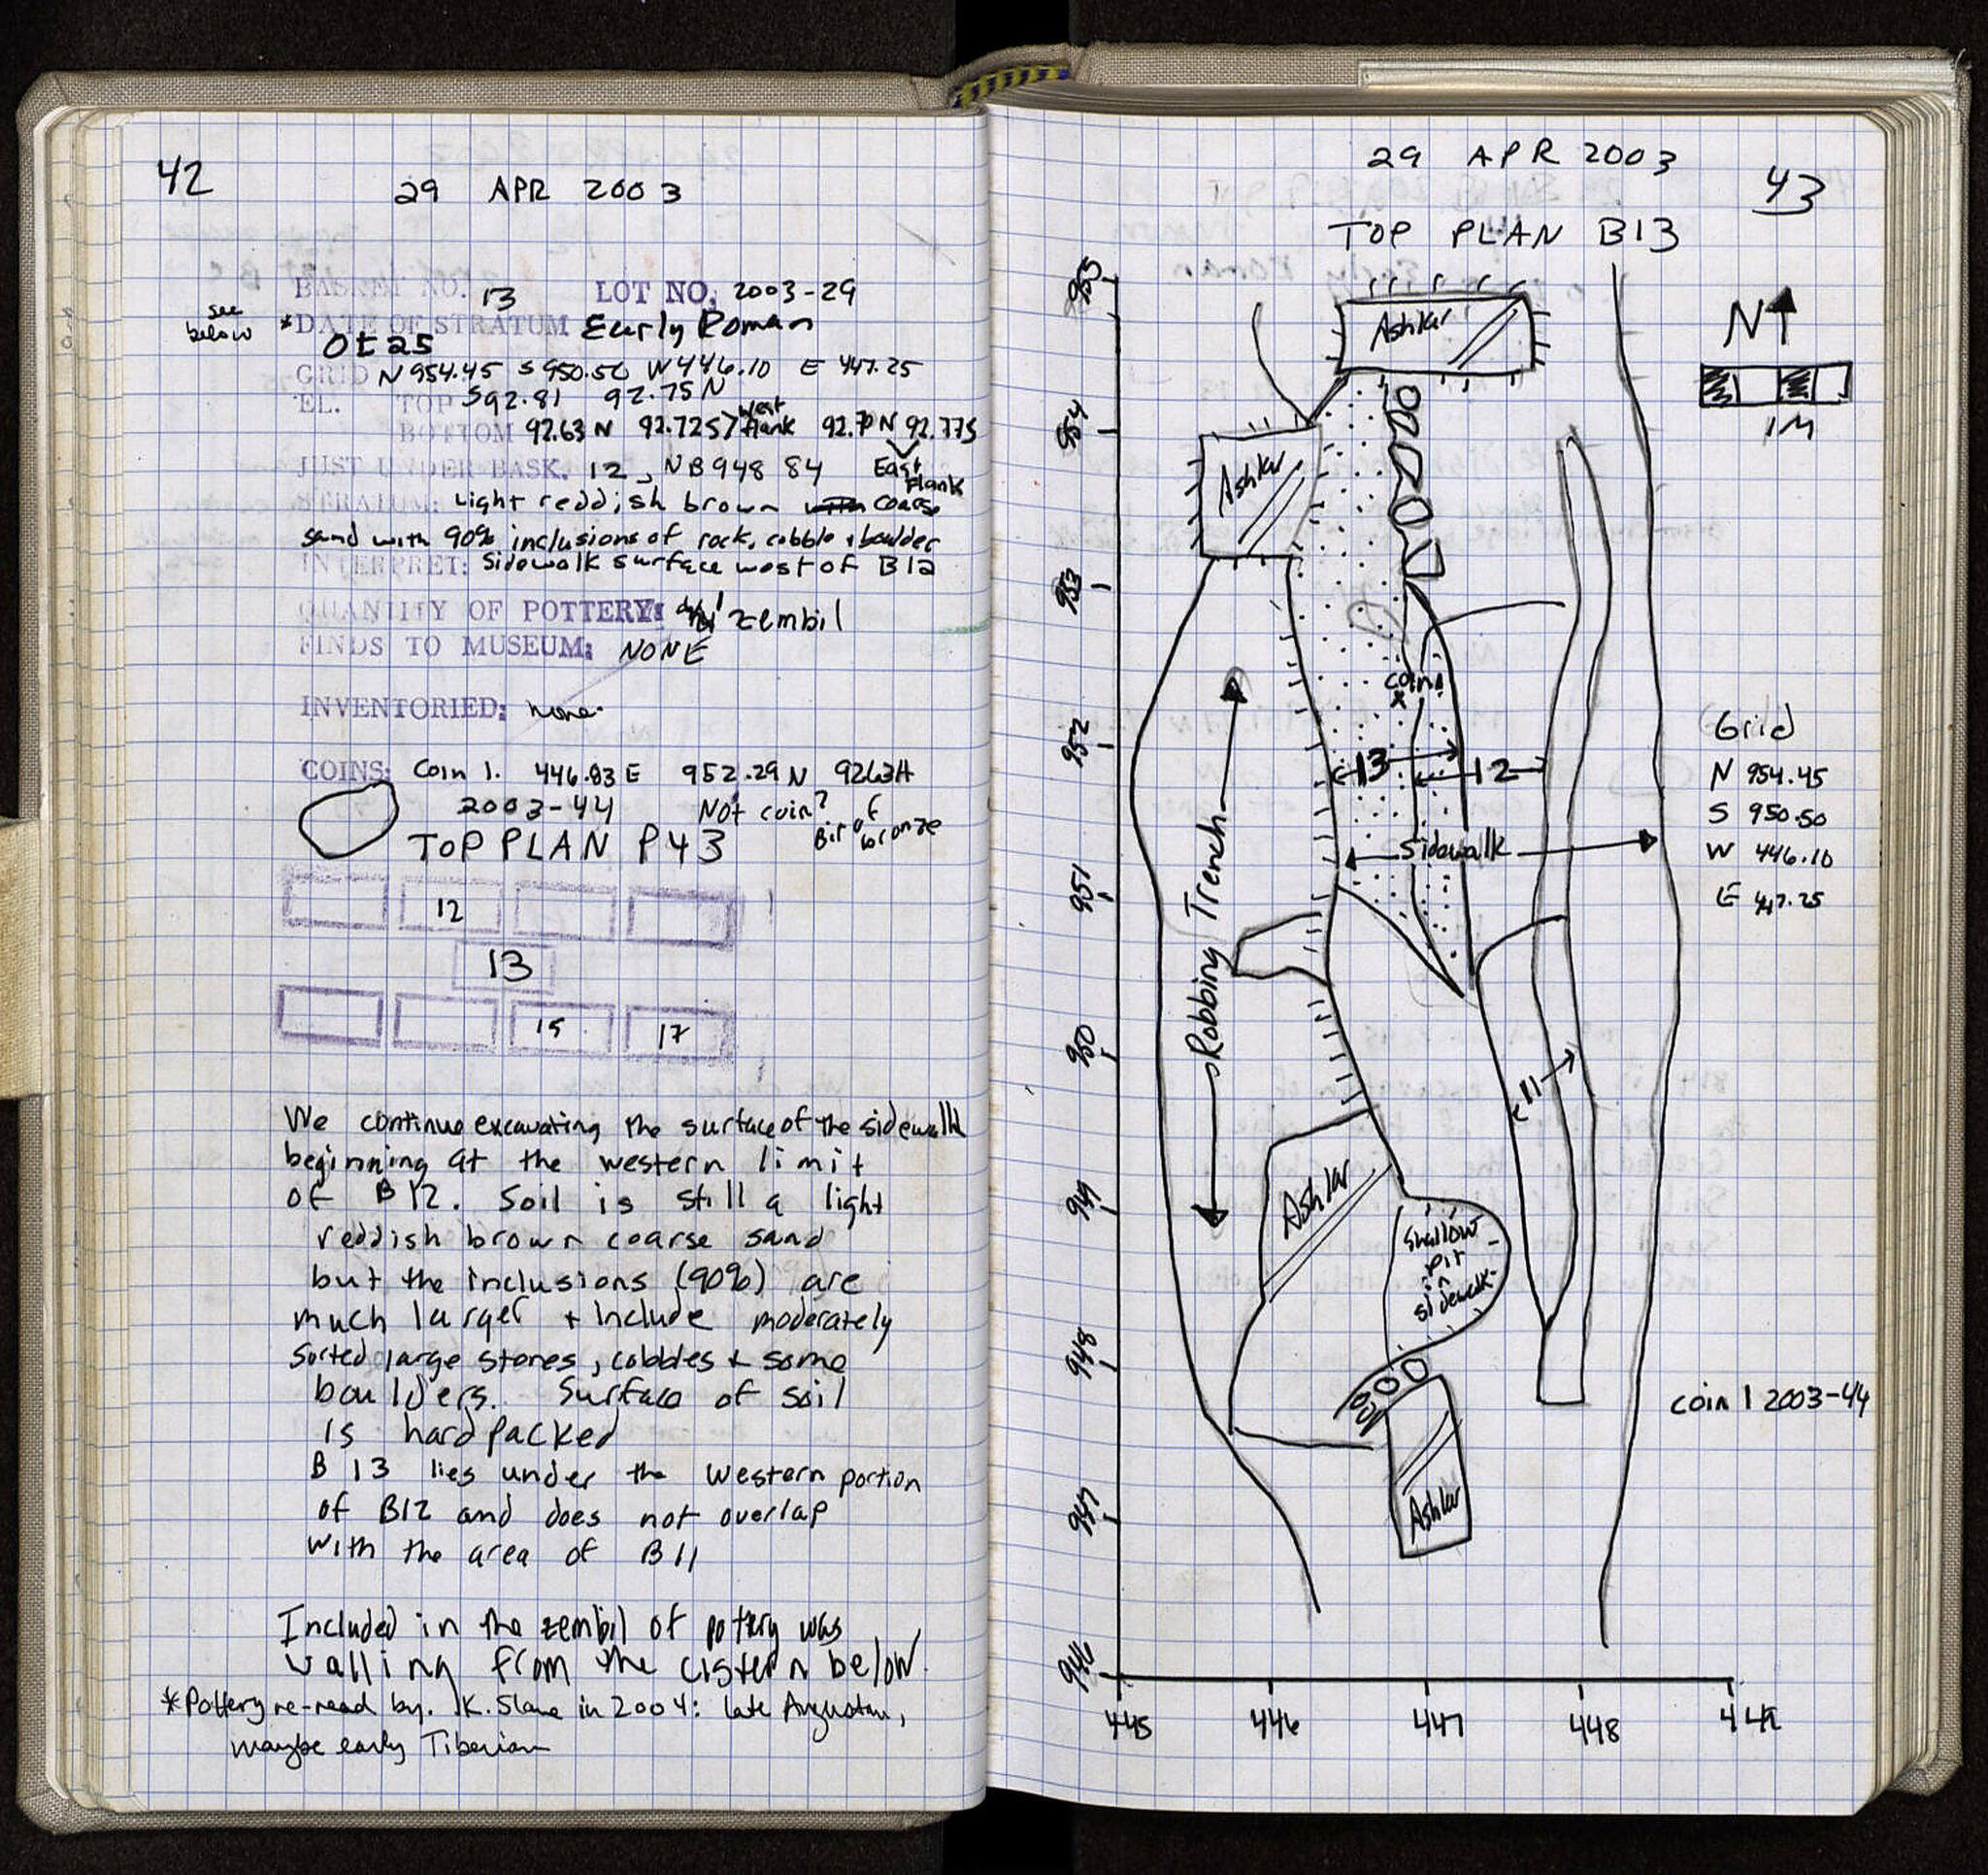 42
29 APR 2003
BASKET NO. 13 LOT NO. 2003-29
see
below
*DATE OF STRATUM Early Roman
0±25
GRID N 954.45 S 950.50 W 446.10 E 447.25
EL. TOP S 92.81 92.75 N
BOTTOM 92.63 N 92.725 West Flank 92.70 N 92.775
East
Flank
JUST UNDER BASK. 12, NB 948 84
STRATUM: Light reddish brown with coarse
sand with 90% inclusions of rock, cobble + boulder
INTERPRET: Sidewalk surface west of B12
QUANTITY OF POTTERY: 1 zembil
FINDS TO MUSEUM: NONE
INVENTORIED: none
COINS: Coin 1. 446.83 E 952.29 N 92.63H
2003-44 Not coin?
Bit of
bronze
TOP PLAN P43
12
13
15 17
We continue excavating the surface of the sidewalk
beginning at the western limit
of B12. Soil is still a light
reddish brown coarse sand
but the inclusions (90%) are
much larger + include moderately
sorted large stones, cobbles & some
boulders. Surface of soil
is hard packed
B 13 lies under the western portion
of B12 and does not overlap
with the area of B11
Included in the zembil of pottery was
valling from the cistern below.
*Pottery re-read by K. Slane in 2004: late Augustan,
maybe early Tiberian
29 APR 2003
43
TOP PLAN B13
955
954
953
952
951
950
949
948
947
946
445 446 447 448 449
N
1M
Ashlar
Ashlar
coin 1
x
13
12
Sidewalk
Robbing Trench
11
Ashlar
Shallow
pit
in
sidewalk
Ashlar
Grid
N 954.45
S 950.50
W 446.10
E 447.25
coin 1 2003-44